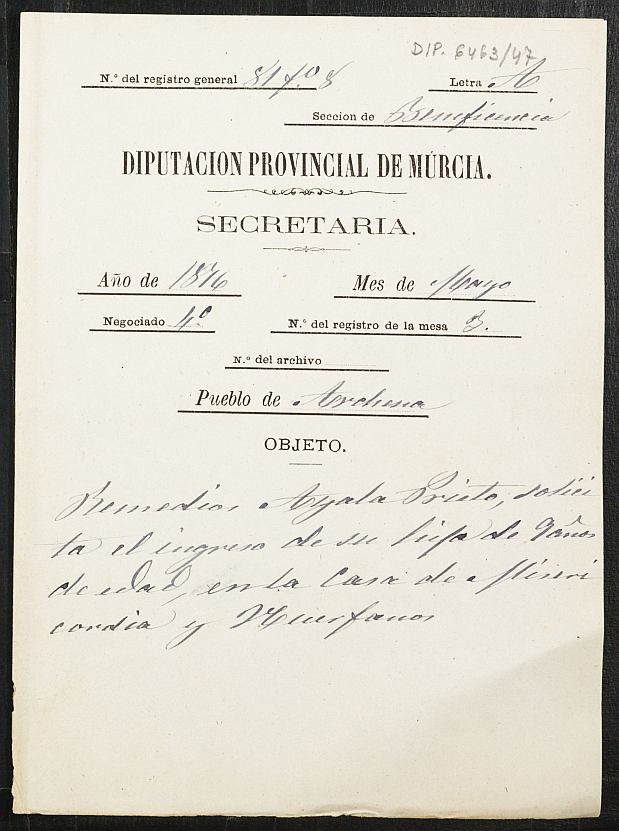 DIP. 6463/47
N.º del registro general
Letra A
Seccion de Beneficencia
DIPUTACION PROVINCIAL DE MÚRCIA.
SECRETARIA.
Año de 1876 Mes de Mayo
Negociado 4º N.º del registro de la mesa 3.
N.º del archivo
Pueblo de Archena
OBJETO.
Remedios Ayala Prieto, solici
ta el ingreso de su hija de 9 años
de edad, en la Casa de Miseri
cordia y Huerfanos